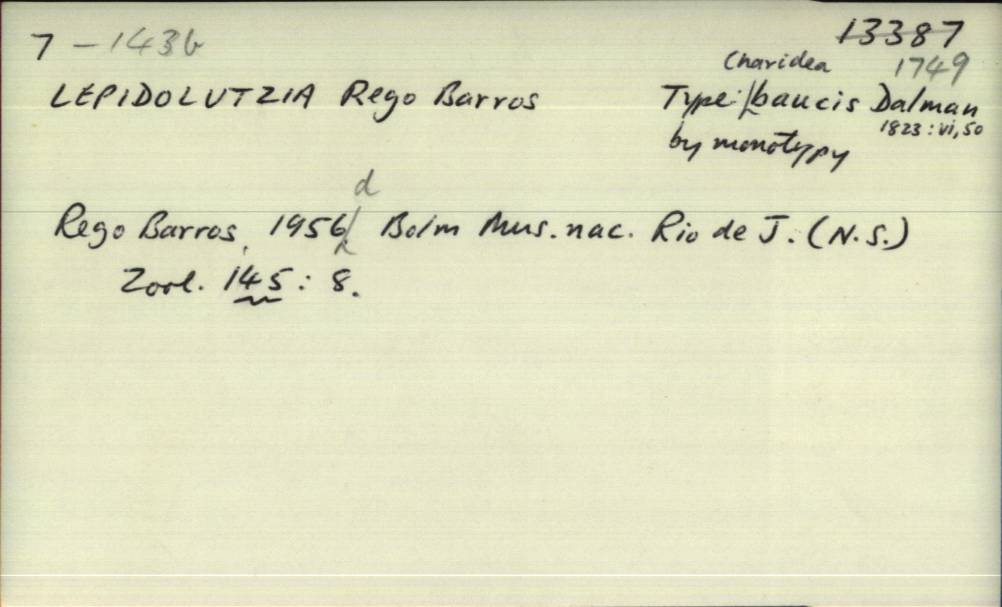 7 - 1436 13387
Charidea 1749
LEPIDOLUTZIA Rego Barros Type: baucis Dalman
1823: vi, 50
by monotypy
d
Rego Barros, 1956 Bolm Mus. nac. Rio de J. (N.S.)
Zool. 145: 8.